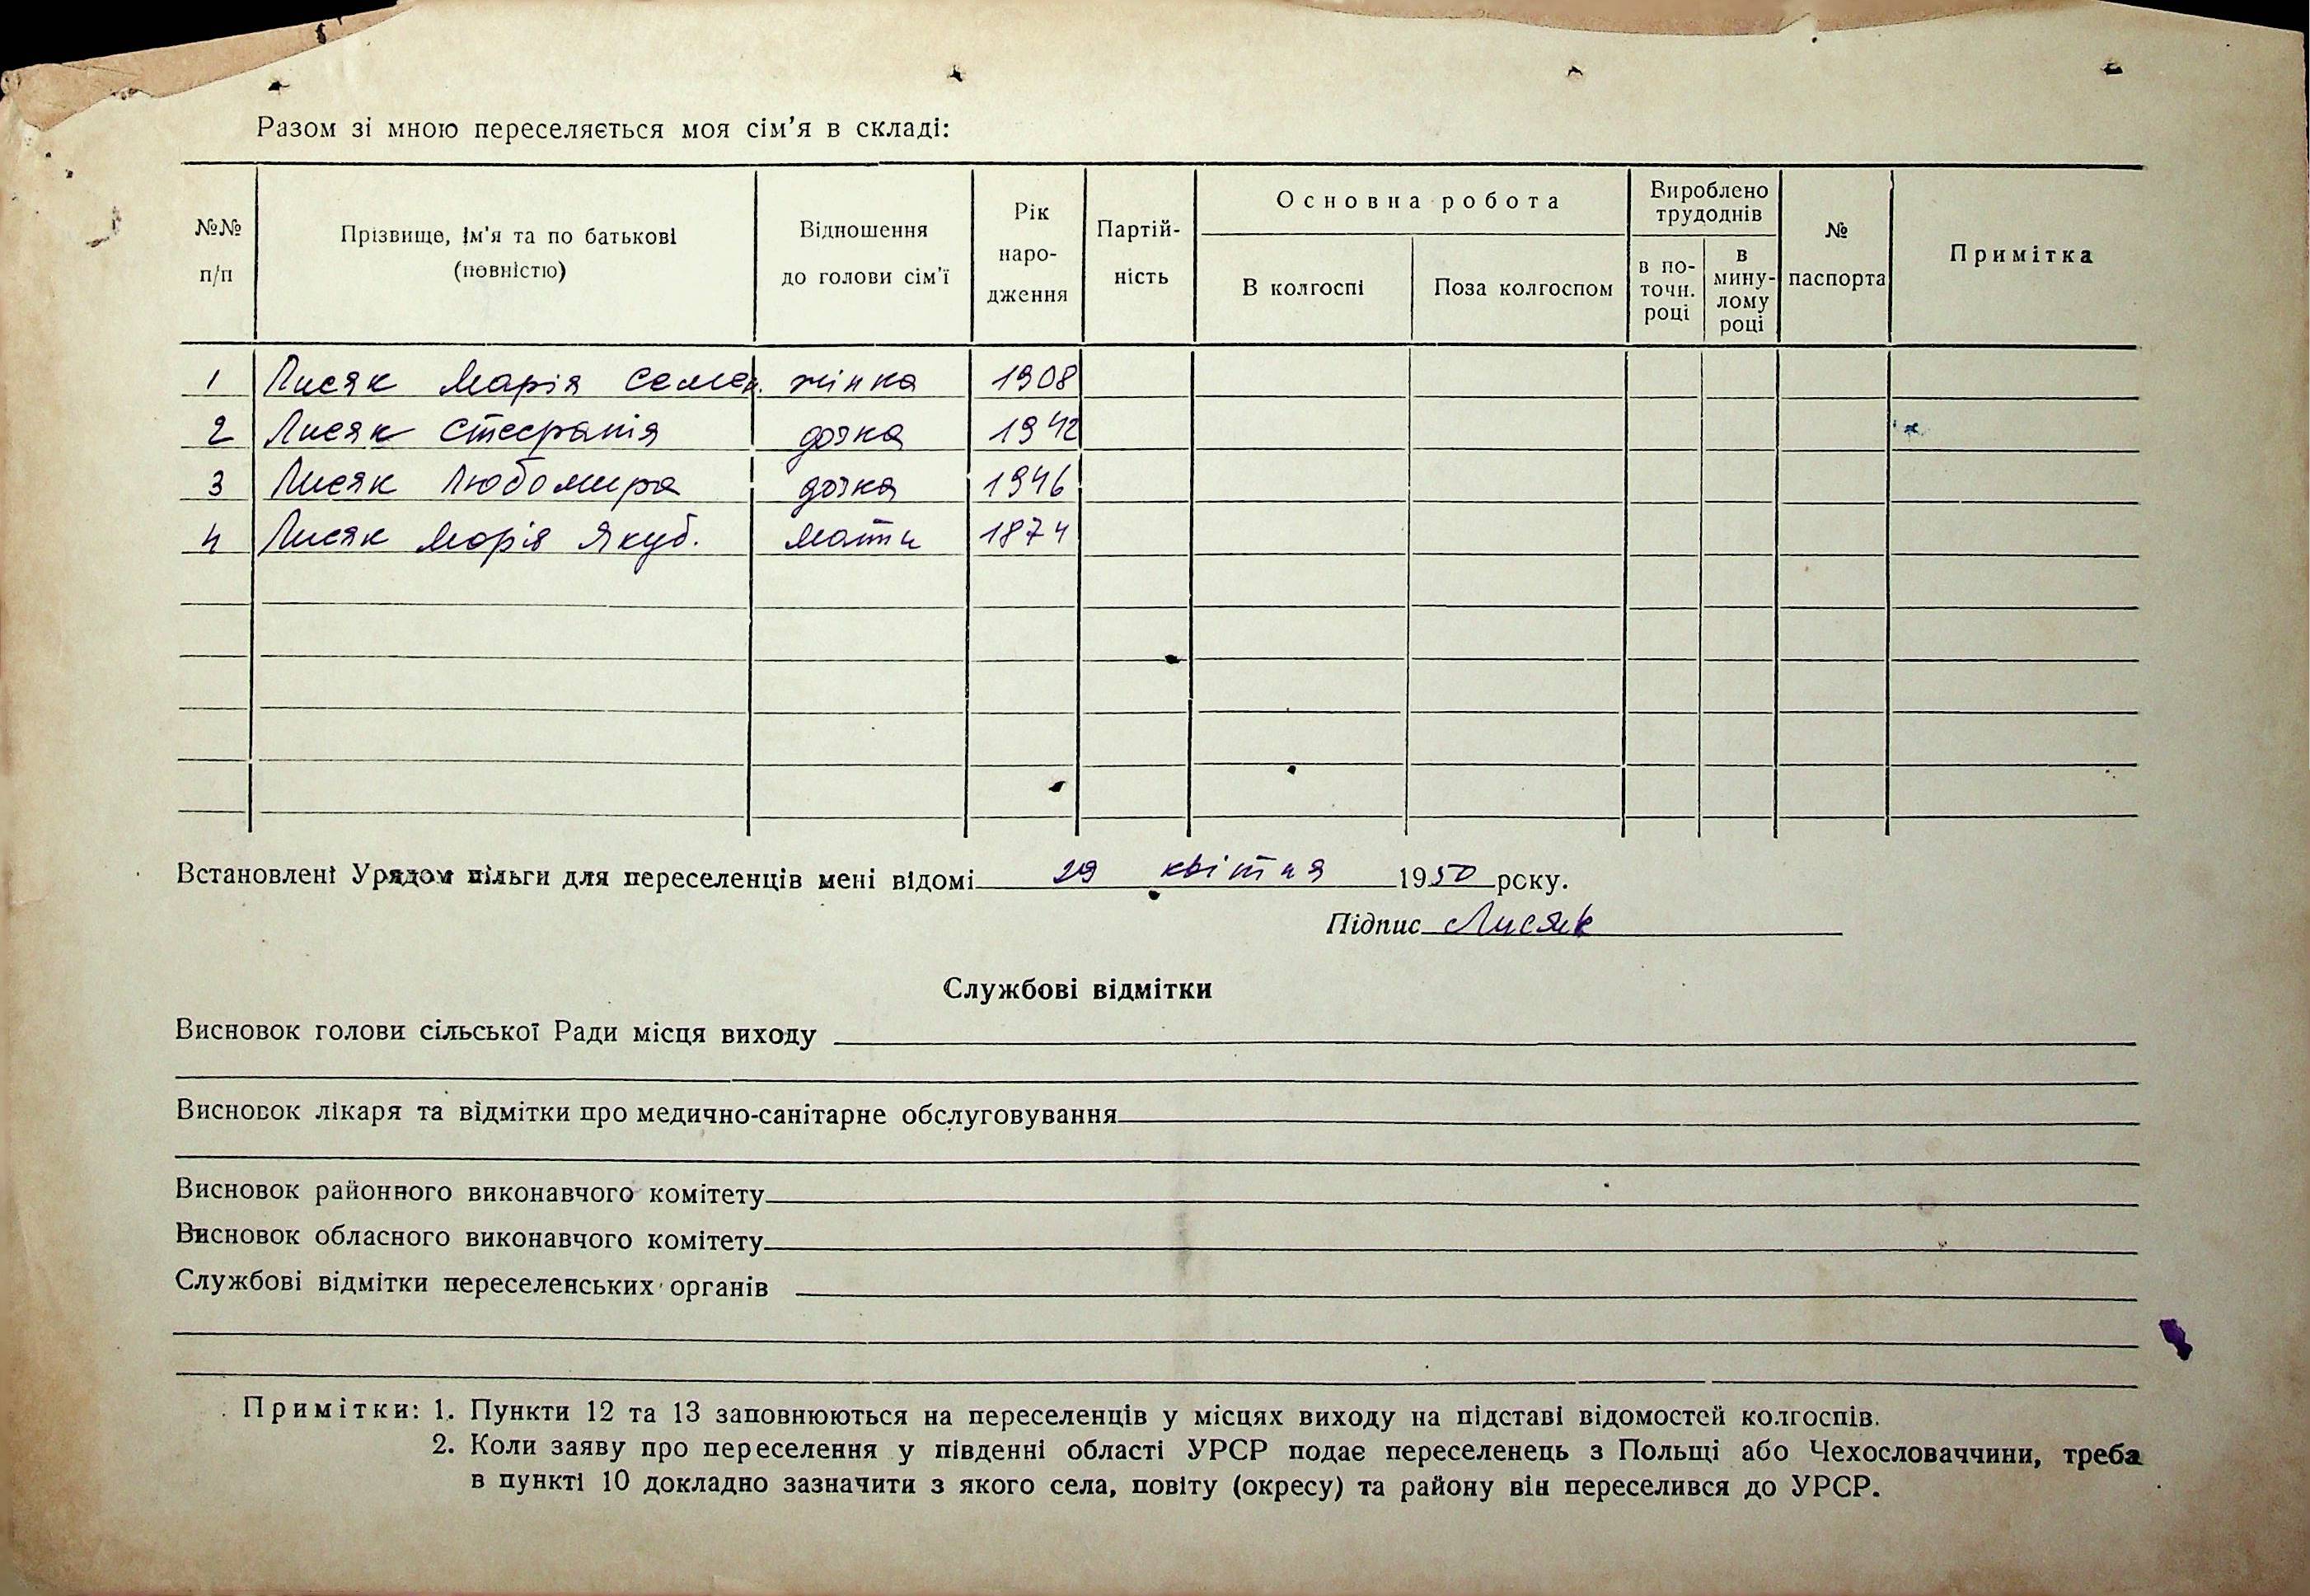 Разом зі мною переселяється моя сім'я в складі:
№№ п/п
Прізвище, ім'я та по батькові (повністю)
Відношення до голови сім'ї
Рік наро-дження
Партій-ність
Основна робота
В колгоспі
Поза колгоспом
Вироблено трудоднів
в по-точн. році
в мину-лому році
№ паспорта
Примітка
1 Лисяк Марія Семен. жінка 1908
2 Лисяк Стефанія дочка 1942
3 Лисяк Любомира дочка 1946
4 Лисяк Марія Якуб. мати 1874
Встановлені Урядом пільги для переселенців мені відомі 29 квітня 1950 року.
Підпис Лисяк
Службові відмітки
Висновок голови сільської Ради місця виходу
Висновок лікаря та відмітки про медично-санітарне обслуговування
Висновок районного виконавчого комітету
Висновок обласного виконавчого комітету
Службові відмітки переселенських органів
Примітки: 1. Пункти 12 та 13 заповнюються на переселенців у місцях виходу на підставі відомостей колгоспів.
2. Коли заяву про переселення у південні області УРСР подає переселенець з Польщі або Чехословаччини, треба
в пункті 10 докладно зазначити з якого села, повіту (окресу) та району він переселився до УРСР.